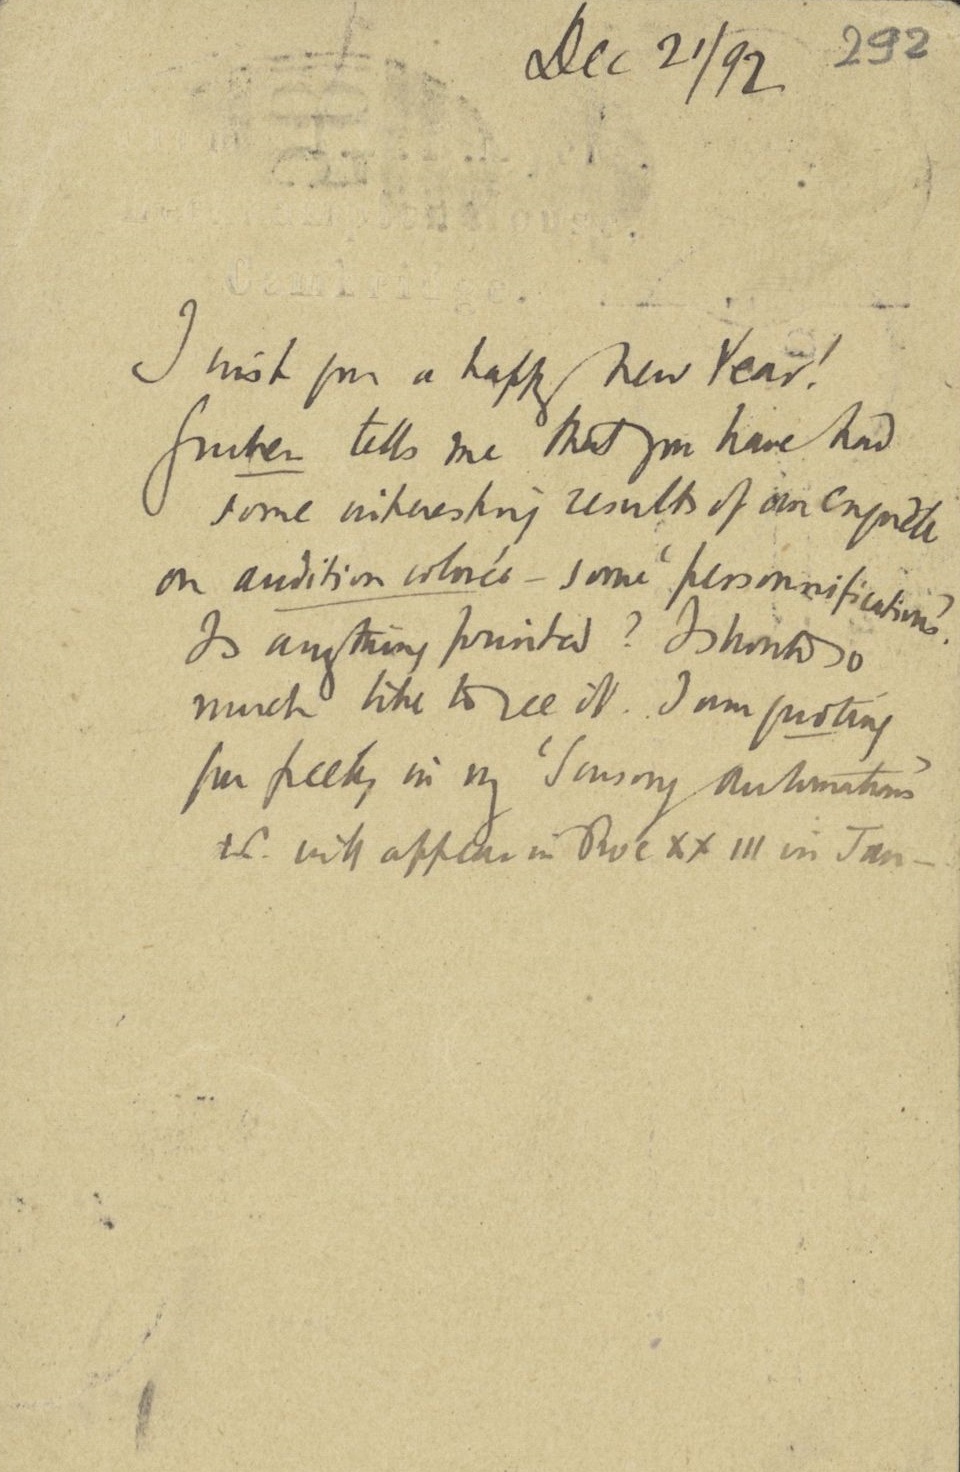 Dec 21/92 292
I wish you a happy new Year!
Gruber tells me that you have had
some interesting results of an enquête
on audition colorée – some 'personnifications'.
Is anything printed? I should so
much like to see it. I am quoting
you freely in my 'Sensory Automatisms'
wh. will appear in Proc XXIII in Jan –